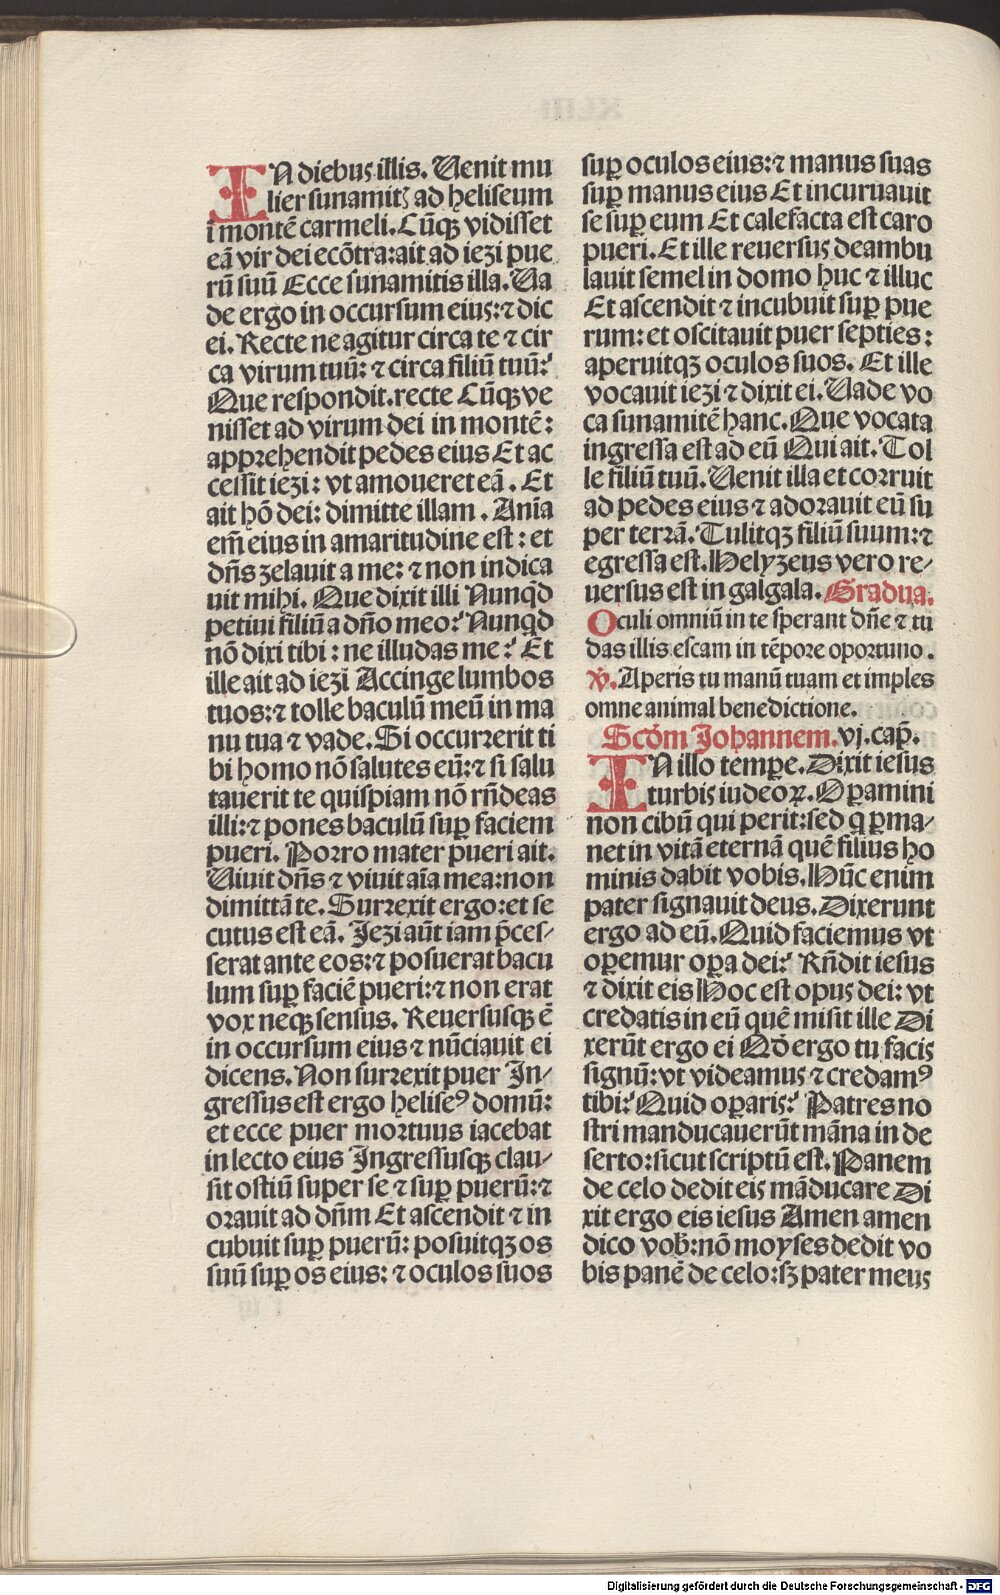 IN diebus illis. Uenit mu
lier sunamitꝭ ad heliseum
ī montē carmeli. Cūqꝫ vidisset
eā vir dei ecōtra: ait ad iezi pue
rū suū Ecce sunamitis illa. Ua
de ergo in occursum eius: ⁊ dic
ei. Recte ne agitur circa te ⁊ cir
ca virum tuū: ⁊ circa filiū tuū?
Que respondit. recte Cūqꝫ ve
nisset ad virum dei in montē:
apprehendit pedes eius Et ac
cessit iezi: vt amoueret eā. Et
ait hō dei: dimitte illam. Anīa
em̄ eius in amaritudine est: et
dn̄s zelauit a me: ⁊ non indica
uit mihi. Que dixit illi Nunqd̄
petiui filiū a dn̄o meo? Nunqd̄
nō dixi tibi: ne illudas me? Et
ille ait ad iezi Accinge lumbos
tuos: ⁊ tolle baculū meū in ma
nu tua ⁊ vade. Si occurrerit ti
bi homo nō salutes eū: ⁊ si salu
tauerit te quispiam nō rn̄deas
illi: ⁊ pones baculū suꝑ faciem
pueri. Porro mater pueri ait.
Uiuit dn̄s ⁊ viuit aīa mea: non
dimittā te. Surrexit ergo: et se
cutus est eā. Jezi aūt iam p̄ces⸗
serat ante eos: ⁊ posuerat bacu
lum suꝑ faciē pueri: ⁊ non erat
vox neqꝫ sensus. Reuersusqꝫ ē
in occursum eius ⁊ nūciauit ei
dicens. Non surrexit puer In⸗
gressus est ergo heliseꝰ domū:
et ecce puer mortuus iacebat
in lecto eius Ingressusqꝫ clau⸗
sit ostiū super se ⁊ suꝑ puerū: ⁊
orauit ad dn̄m Et ascendit ⁊ in
cubuit suꝑ puerū: posuitqꝫ os
suū suꝑ os eius: ⁊ oculos suos
suꝑ oculos eius: ⁊ manus suas
suꝑ manus eius Et incuruauit
se suꝑ eum Et calefacta est caro
pueri. Et ille reuersus deambu
lauit semel in domo huc ⁊ illuc
Et ascendit ⁊ incubuit suꝑ pue
rum: et oscitauit puer septies:
aperuitqꝫ oculos suos. Et ille
vocauit iezi ⁊ dixit ei. Uade vo
ca sunamitē hanc. Que vocata
ingressa est ad eū Qui ait. Tol
le filiū tuū. Uenit illa et corruit
ad pedes eius ⁊ adorauit eū su
per terrā. Tulitqꝫ filiū suum: ⁊
egressa est. Helyzeus vero re⸗
uersus est in galgala. Gradua.
Oculi omniū in te sperant dn̄e ⁊ tu
das illis escam in tēpore oportuno.
℣. Aperis tu manū tuam et imples
omne animal benedictione.
Scd̄m Johannem. vj. cap̄.
IN illo tempꝑe. Dixit iesus
turbis iudeoꝝ. Oꝑamini
non cibū qui perit: sed q ꝑma⸗
net in vitā eternā quē filius ho
minis dabit vobis. Hūc enim
pater signauit deus. Dixerunt
ergo ad eū. Quid faciemus vt
oꝑemur oꝑa dei? Rn̄dit iesus
⁊ dixit eis Hoc est opus dei: vt
credatis in eū quē misit ille Di
xerūt ergo ei Qd̄ ergo tu facis
signū: vt videamus ⁊ credamꝰ
tibi? Quid oꝑaris? Patres no
stri manducauerūt māna in de
serto: sicut scriptū est. Panem
de celo dedit eis māducare Di
xit ergo eis iesus Amen amen
dico vob̄: nō moyses dedit vo
bis panē de celo: sꝫ pater meus
Digitalisierung gefördert durch die Deutsche Forschungsgemeinschaft - DFG